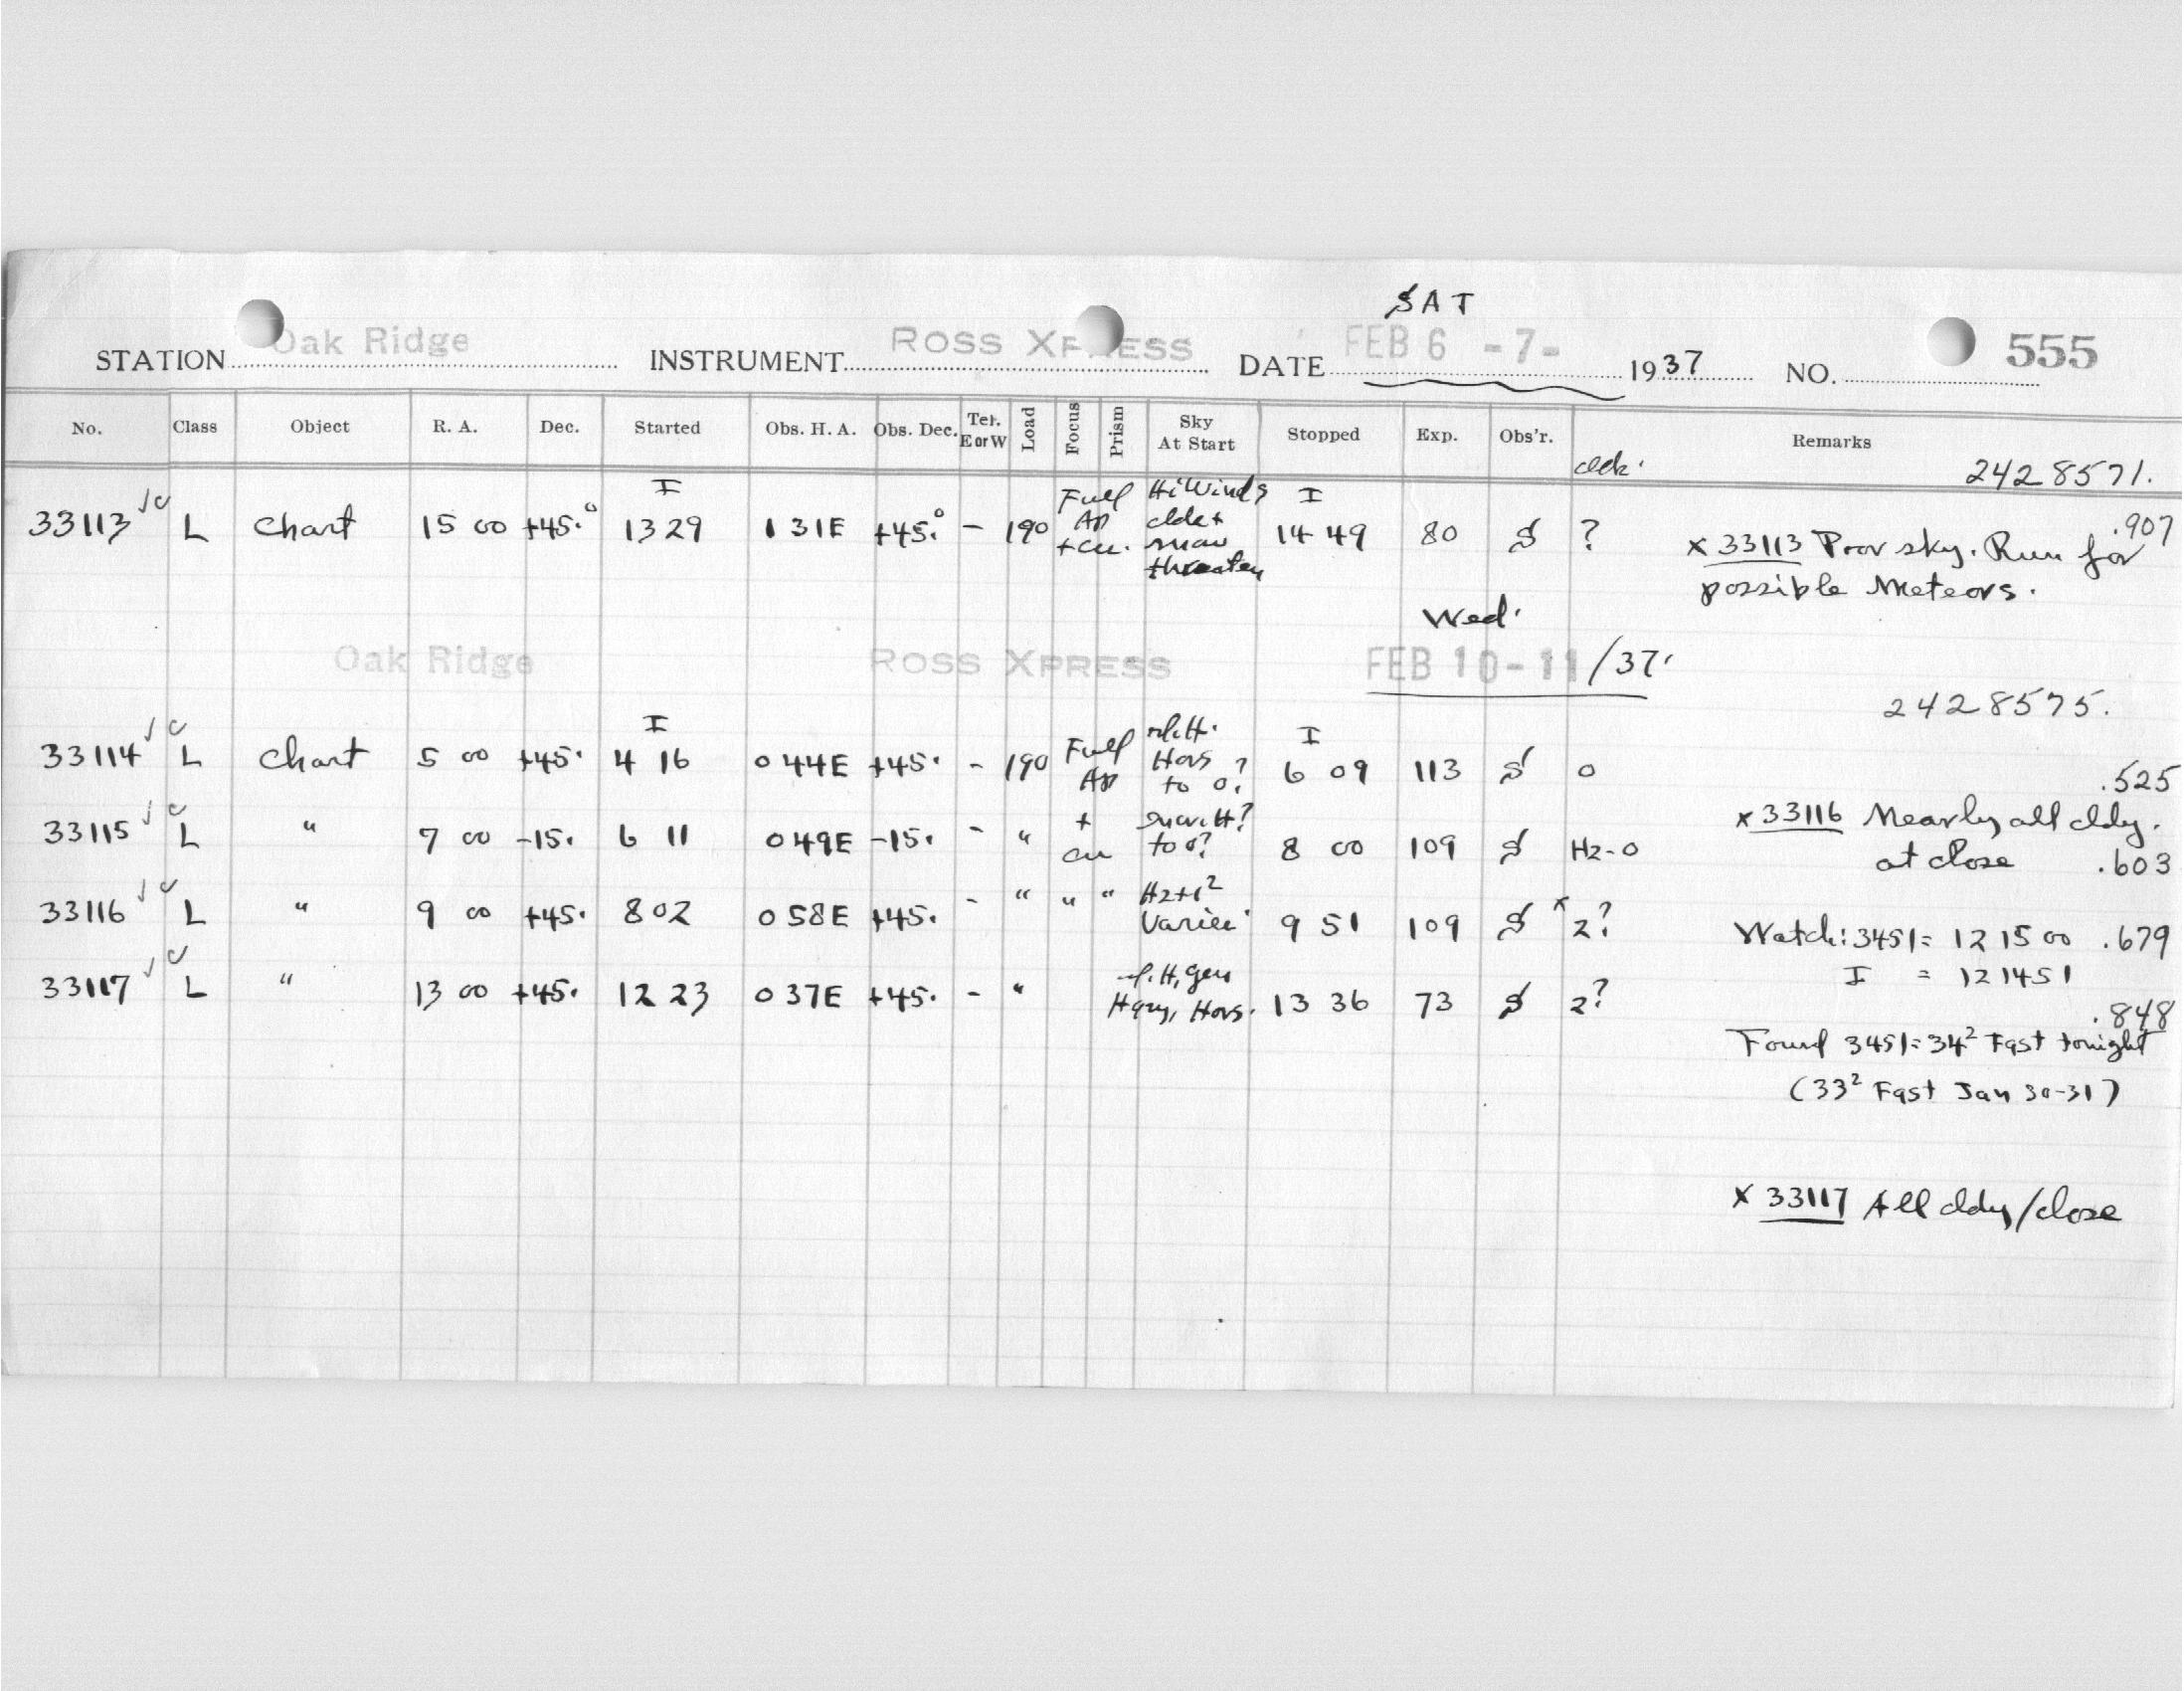 SAT
STATION Oak Ridge INSTRUMENT ROSS XPRESS DATE FEB 6 -7- 1937 NO. 555
No. Class Object R. A. Dec. Started Obs. H. A. Obs. Dec. Tel. E or W Load Focus Prism Sky At Start Stopped Exp. Obs'r. Remarks
2428571.
33113 √c L Chart 15 00 +45.° I 13 29 1 31E +45.° - 190 Full Ap + cu. Hi Winds clds + snow threaten I 14 49 80 S ? x 33113 Poor sky. Run for .907
possible Meteors.
Wed.
Oak Ridge ROSS XPRESS FEB 10-11/37.
2428575.
33114 √c L Chart 5 00 +45. I 4 16 0 44E +45. - 190 Full Ap Hors to 0? I 6 09 113 S 0 .525
33115 √c L " 7 00 -15. 6 11 0 49E -15. - " + cu to 0? 8 00 109 S Hz-0 x 33116 Nearly all cldy.
at close .603
33116 √c L " 9 00 +45. 8 02 0 58E +45. - " " " Hz+1² Varies 9 51 109 S x 2? Watch: 3451= 12 15 00 .679
I = 12 14 51
33117 √c L " 13 00 +45. 12 23 0 37E +45. - " Hazy, Hors. 13 36 73 S 2? .848
Found 3451= 34² Fast tonight
(33² Fast Jan 30-31)
x 33117 All cldy/close